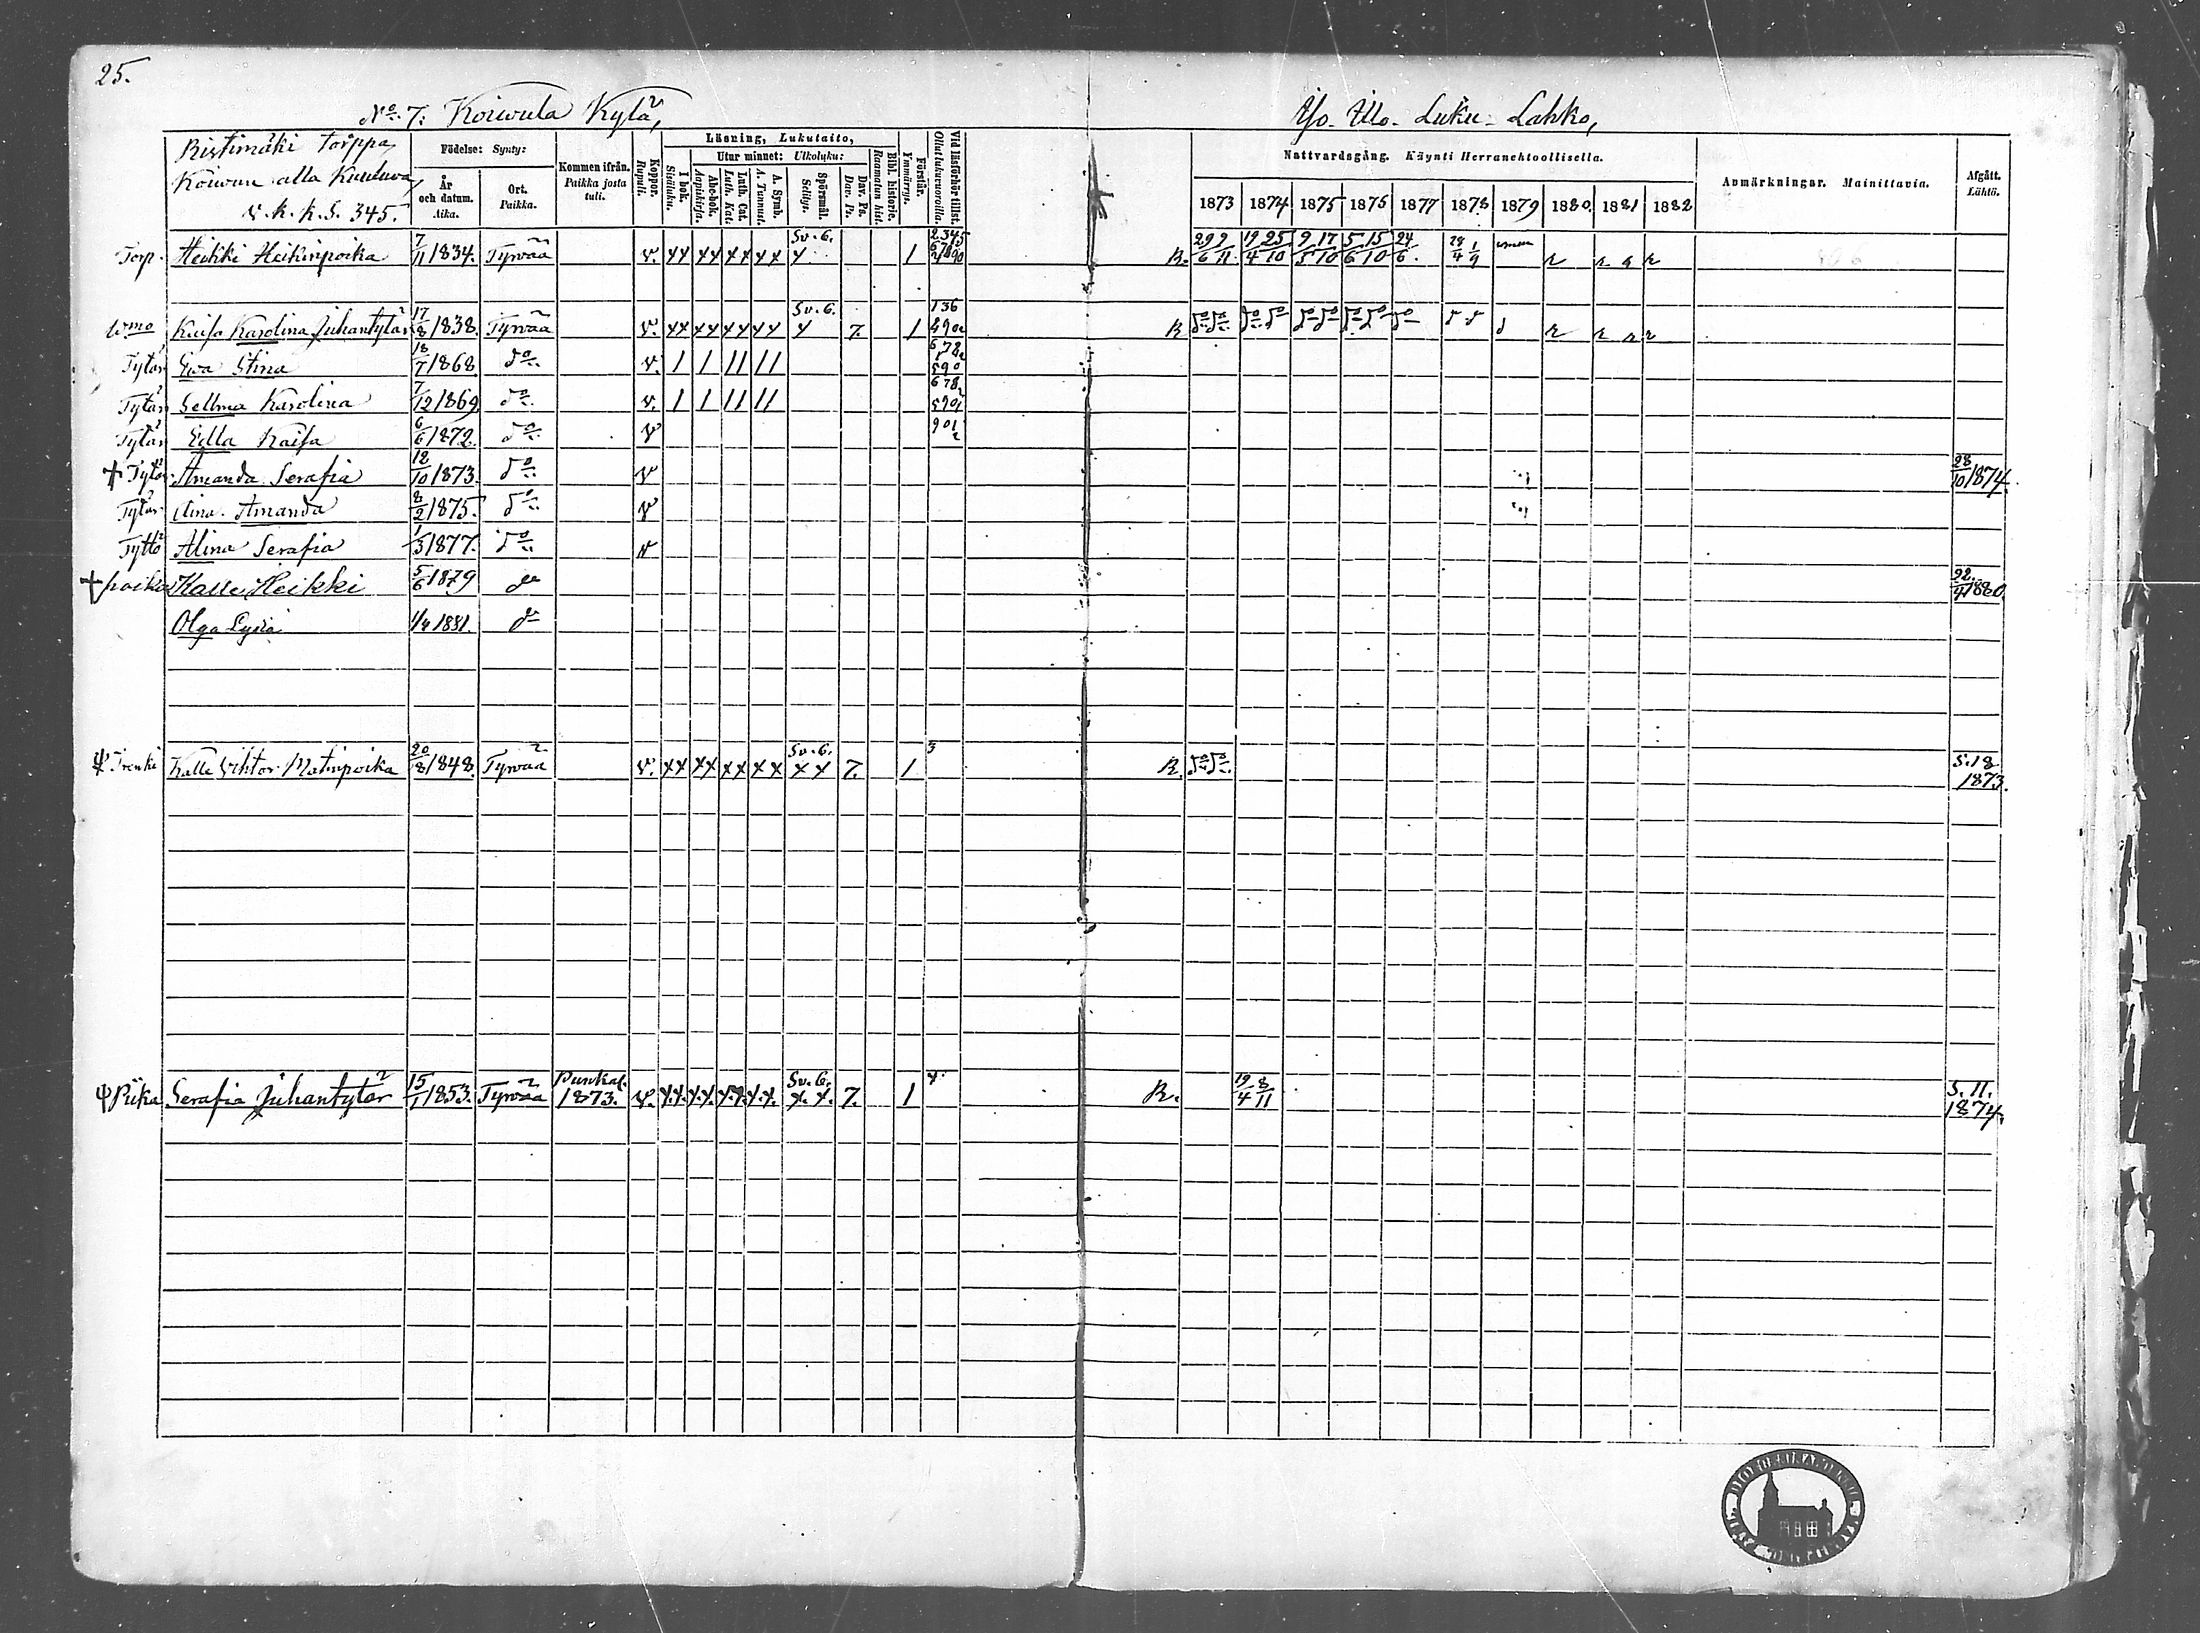 25.
No. 7. Koiwula Kylä,
Yjo Ulo Luku Lahko,
Ristimäki torppa,
Koiwun alla Kuuluwa,
v. k. k. S. 345.
Födelse: Synty:
År och datum. Aika.
Ort. Paikka.
Kommen ifrån. Paikka josta tuli.
Koppor. Rupuli.
Läsning, Lukutaito,
I bok. Sisäluku.
Utur minnet: Ulkoluku:
Abc-bok. Aapiskirja.
Luth. Cat. Luth. Kat.
A. Symb. A. Tunnust.
Spörsmål. Selitys.
Dav. Ps. Dav. Ps.
Bibl. historie. Raamatun hist.
Förstår. Ymmärrys.
Vid läsförhör tillst. Ollut lukuvuoroilla.
Nattvardsgång. Käynti Herranehtoollisella.
1873 1874 1875 1876 1877 1878 1879 1880. 1881 1882
Anmärkningar. Mainittavia.
Afgått. Lähtö.
Torp. Heikki Heikinpoika 7/11 1834. Tyrwää v. Sv. 6. 1 R. 29/6 9/11 19/4 25/10 9/5 17/10 5/6 15/10 24/6 28/4 1/9
wmo Kaisa Karolina Juhantytär 17/8 1838. Tyrwää v. Sv. 6. 7. 1 136 R
Tytär Ewa Stina 18/7 1868. do v.
Tytär Sellma Karolina 7/12 1869 do v.
Tytär Edla Kaisa 6/6 1872. do v
† Tytär Amanda Serafia 12/10 1873. do v 28/10 1874.
Tytär Iina Amanda 8/2 1875. do v
Tyttö Alina Serafia 1/3 1877. do v
† poika Kalle Heikki 5/6 1879 do 22/4 1880.
Olga Lydia 1/4 1881. do
Trenki Kalle Wihtor Matinpoika 20/8 1848. Tyrwää v. Sv. 6. 7. 1 3 R. do do S. 18 1873.
Piika Serafia Juhantytär 15/1 1853. Tyrwää Punkal. 1873. v. Sv. 6. 7. 1 4. R. 19/4 8/11 S. 11. 1874.